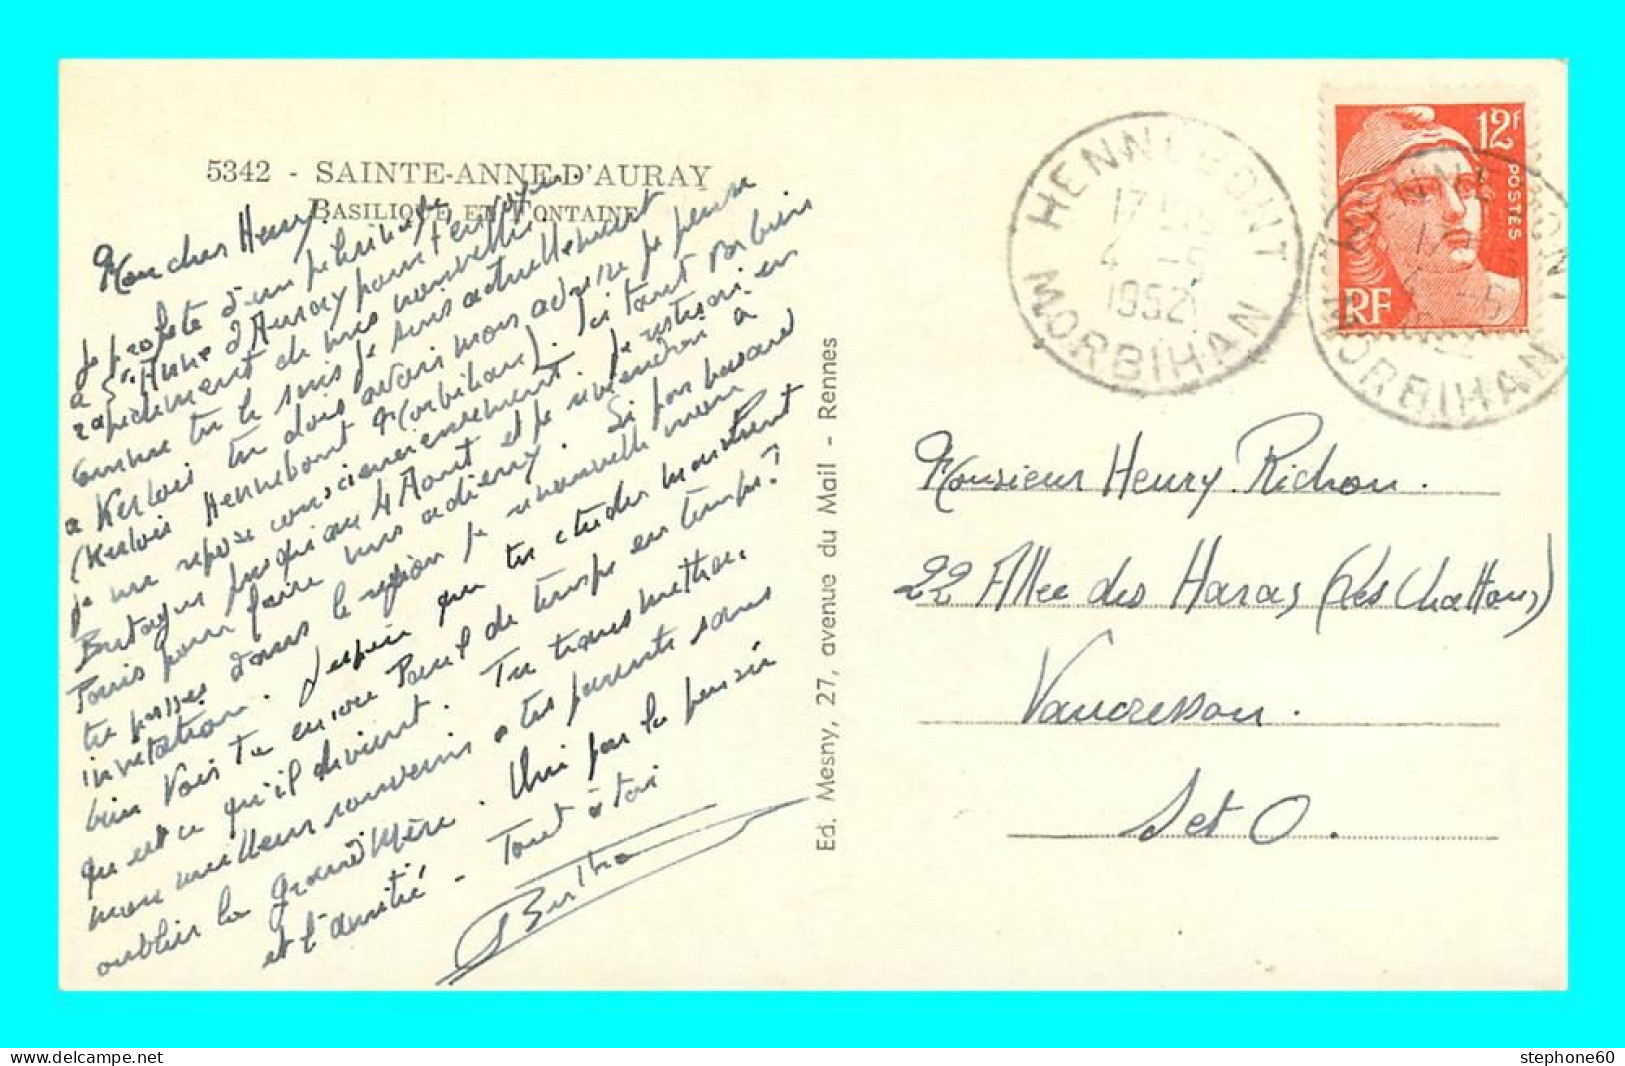 5342 - SAINTE-ANNE-D'AURAY
BASILIQUE ET FONTAINE
Mon cher Henry.
Je profite d'un pèlerinage
a Ste Anne d'Auray pour t'envoyer
rapidement de mes nouvelles.
comme tu le sais je suis actuellement
a Kerlois tu dois avoir mon adresse je pense
(Kerlois Hennebont Morbihan). Ici tout va bien
je me repose consciencieusement. Je resterai en
Bretagne jusqu'au 4 Aout et je reviendrai à
Paris pour faire mes adieux. Si par hasard
tu passes dans la région je renouvelle mon
invitation. J'espère que tes études marchent
bien Vois Tu encore Paul de temps en temps?
qu'est ce qu'il devient. Tu transmettras
mon meilleur souvenir a tes parents sans
oublier la grand Mère. Uni par la pensée
et l'amitié - Tout à toi
Ed. Mesny, 27, avenue du Mail - Rennes
HENNEBONT
17
4 -5
1952
MORBIHAN
12F
POSTES
RF
MORBIHAN
Monsieur Henry Richon.
22 Allée des Haras (Les Chattons)
Vaucresson.
S et O.
stephone60